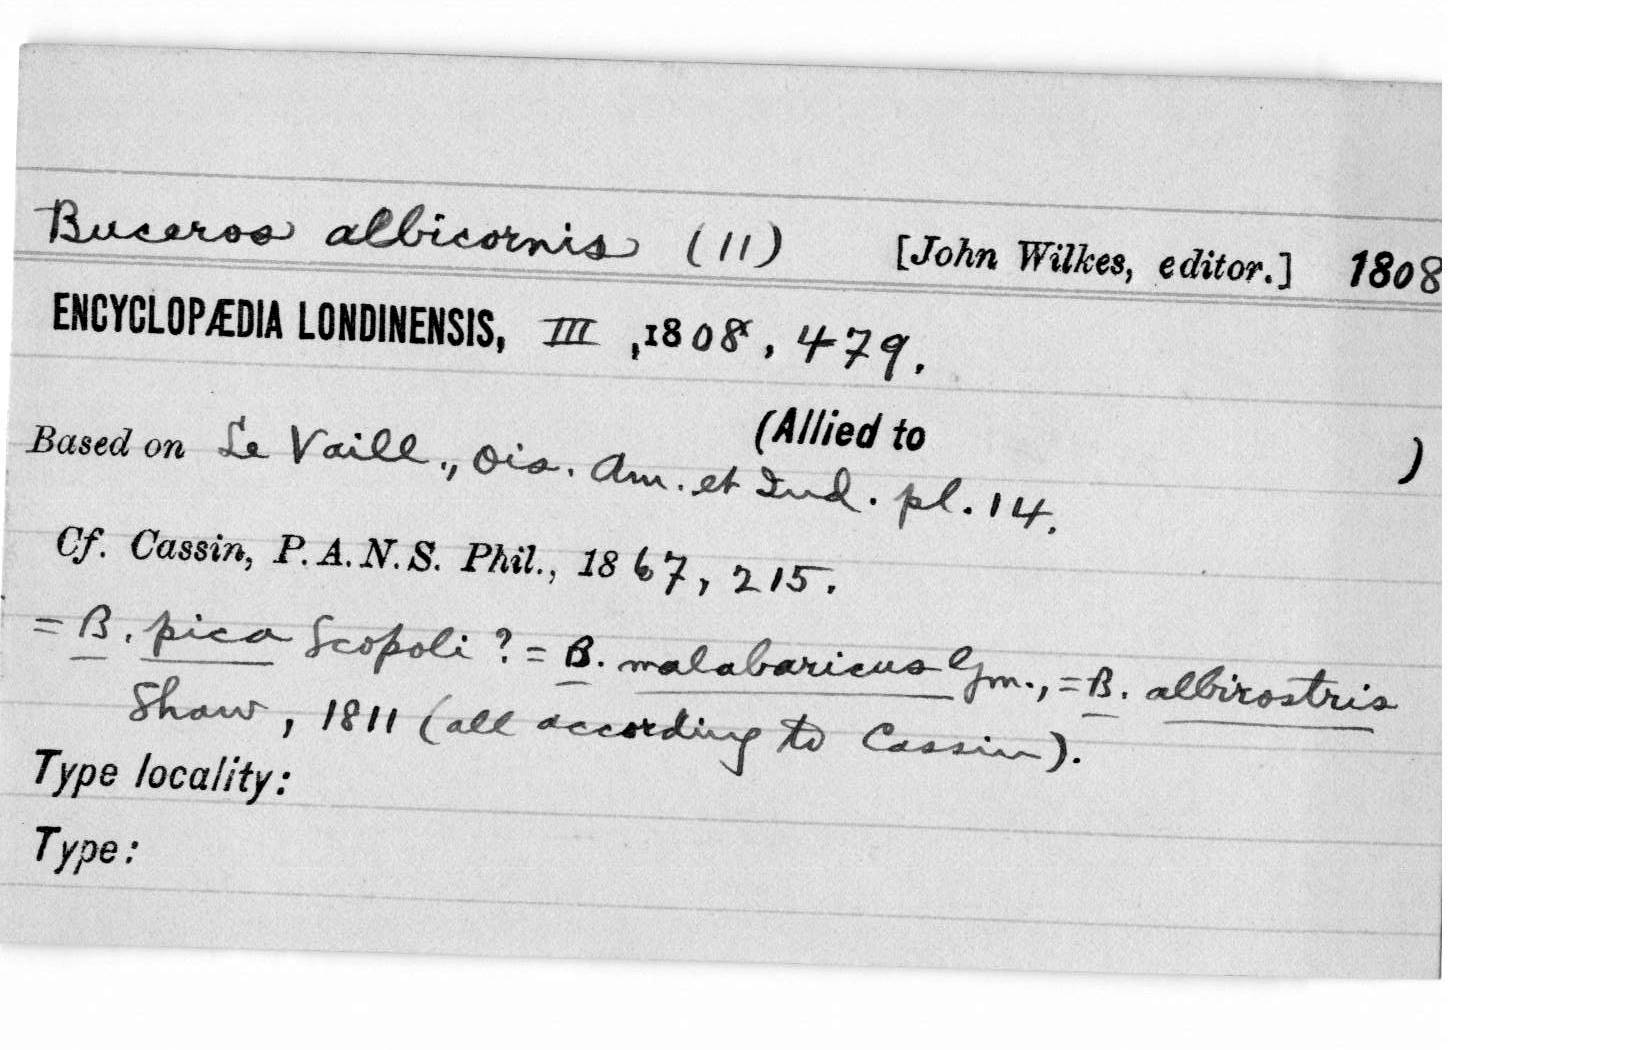 Buceros albicornis (11) [John Wilkes, editor.] 1808
ENCYCLOPÆDIA LONDINENSIS, III, 1808, 479.
(Allied to )
Based on Le Vaill., Ois. Am. et Ind. pl. 14.
Cf. Cassin, P.A.N.S. Phil., 1867, 215.
= B. pica Scopoli ? = B. malabaricus Gm., = B. albirostris
Shaw, 1811 (all according to Cassin).
Type locality:
Type: